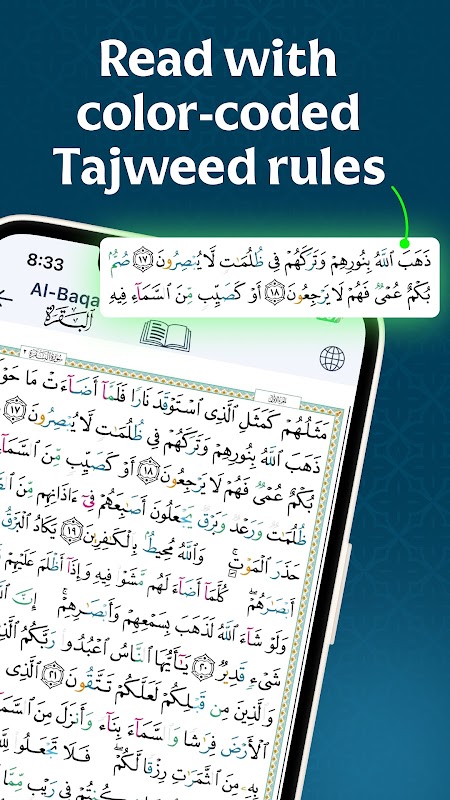 Read with
color-coded
Tajweed rules
ذَهَبَ ٱللَّهُ بِنُورِهِمْ وَتَرَكَهُمْ فِى ظُلُمَٰتٍ لَّا يُبْصِرُونَ ١٧ صُمٌّۢ
بُكْمٌ عُمْىٌ فَهُمْ لَا يَرْجِعُونَ ١٨ أَوْ كَصَيِّبٍ مِّنَ ٱلسَّمَآءِ فِيهِ
8:33
Al-Baqa
البقرة
مَثَلُهُمْ كَمَثَلِ ٱلَّذِى ٱسْتَوْقَدَ نَارًا فَلَمَّآ أَضَآءَتْ مَا حَوْ
ذَهَبَ ٱللَّهُ بِنُورِهِمْ وَتَرَكَهُمْ فِى ظُلُمَٰتٍ لَّا يُبْصِرُونَ ١٧
بُكْمٌ عُمْىٌ فَهُمْ لَا يَرْجِعُونَ ١٨ أَوْ كَصَيِّبٍ مِّنَ ٱلسَّمَآ
ظُلُمَٰتٌ وَرَعْدٌ وَبَرْقٌ يَجْعَلُونَ أَصَٰبِعَهُمْ فِىٓ ءَاذَانِهِم مِّنَ ٱلصَّ
حَذَرَ ٱلْمَوْتِ ۚ وَٱللَّهُ مُحِيطٌۢ بِٱلْكَٰفِرِينَ ١٩ يَكَادُ ٱلْبَرْقُ
أَبْصَٰرَهُمْ ۖ كُلَّمَآ أَضَآءَ لَهُم مَّشَوْا۟ فِيهِ وَإِذَآ أَظْلَمَ عَلَيْهِمْ
وَلَوْ شَآءَ ٱللَّهُ لَذَهَبَ بِسَمْعِهِمْ وَأَبْصَٰرِهِمْ ۚ إِنَّ ٱللَّ
شَىْءٍ قَدِيرٌ ٢٠ يَٰٓأَيُّهَا ٱلنَّاسُ ٱعْبُدُوا۟ رَبَّكُمُ ٱلَّذِ
وَٱلَّذِينَ مِن قَبْلِكُمْ لَعَلَّكُمْ تَتَّقُونَ ٢١ ٱلَّذِى
ٱلْأَرْضَ فِرَٰشًا وَٱلسَّمَآءَ بِنَآءً وَأَنزَلَ مِنَ ٱلسَّمَ
بِهِۦ مِنَ ٱلثَّمَرَٰتِ رِزْقًا لَّكُمْ ۖ فَلَا تَجْعَلُوا۟ لِلَّ
كُنتُمْ فِى رَيْبٍ مِّمَّا